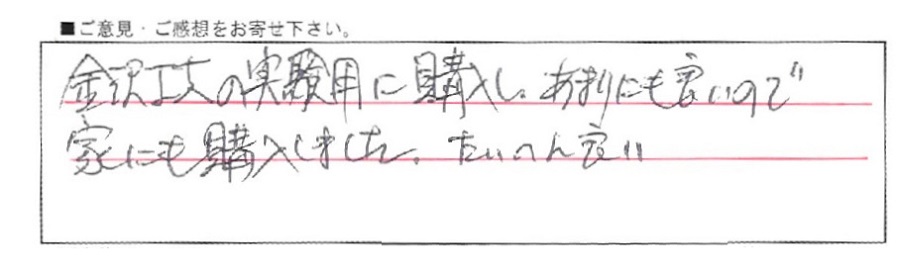 ■ご意見・ご感想をお寄せ下さい。
金沢工大の実験用に購入し、あまりにも良いので
家にも購入しました。たいへん良い